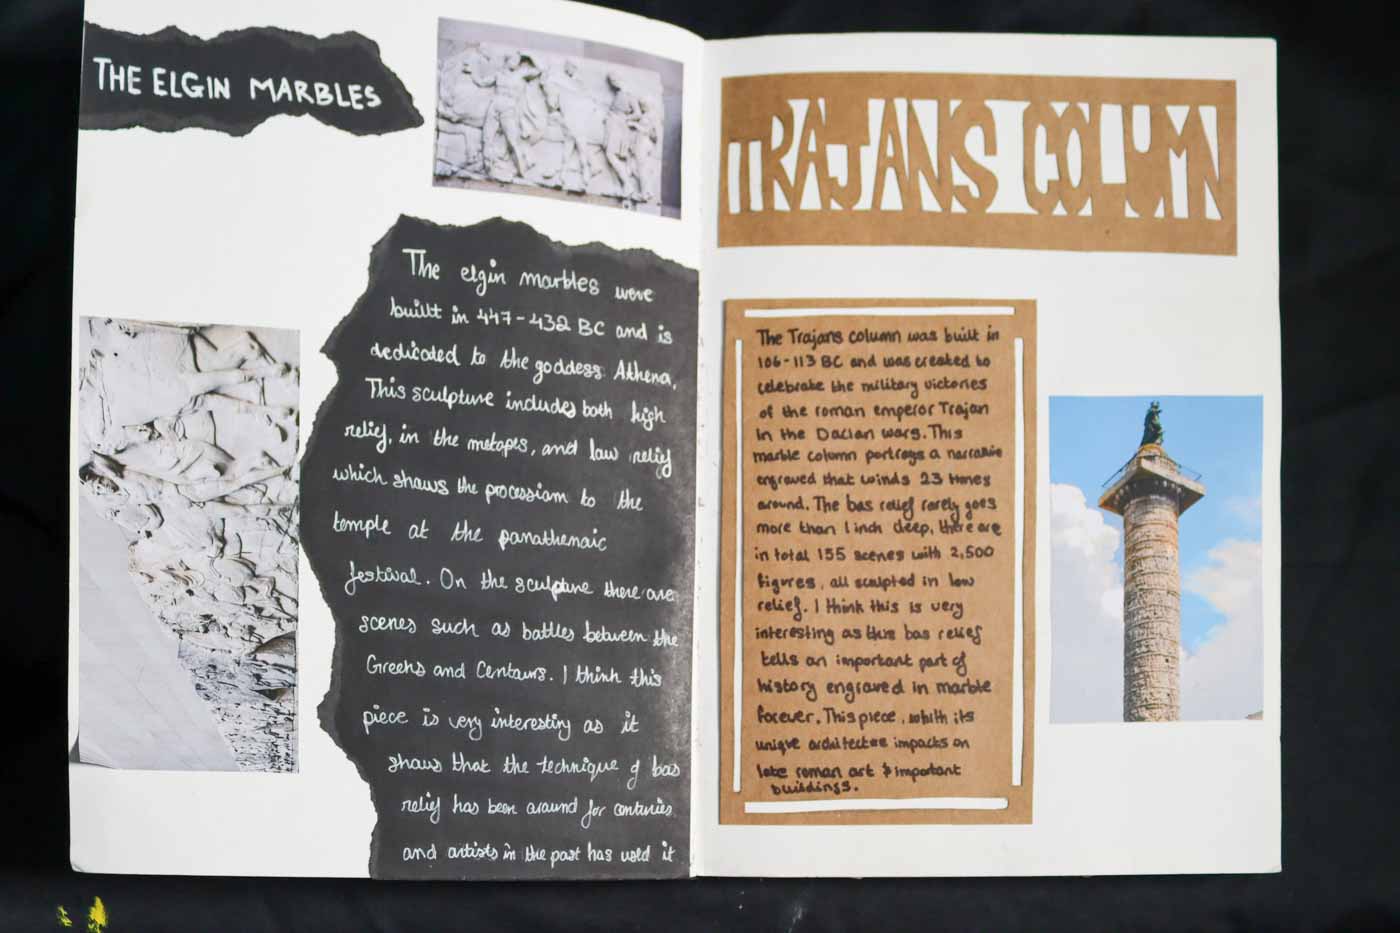 THE ELGIN MARBLES
The elgin marbles were
built in 447-432 BC and is
dedicated to the goddess Athena.
This sculpture includes both high
relief, in the metopes, and low relief
which shows the procession to the
temple at the panathenaic
festival. On the sculpture there are
scenes such as battles between the
Greeks and Centaurs. I think this
piece is very interesting as it
shows that the technique of bas
relief has been around for centuries
and artists in the past has used it
TRAJANS COLUMN
The Trajans column was built in
106-113 BC and was created to
celebrate the military victories
of the roman emperor Trajan
in the Dacian wars. This
marble column portrays a narrative
engraved that winds 23 times
around. The bas relief rarely goes
more than 1 inch deep, there are
in total 155 scenes with 2,500
figures, all sculpted in low
relief. I think this is very
interesting as this bas relief
tells an important part of
history engraved in marble
forever. This piece, with its
unique architecture impacts on
late roman art & important
buildings.